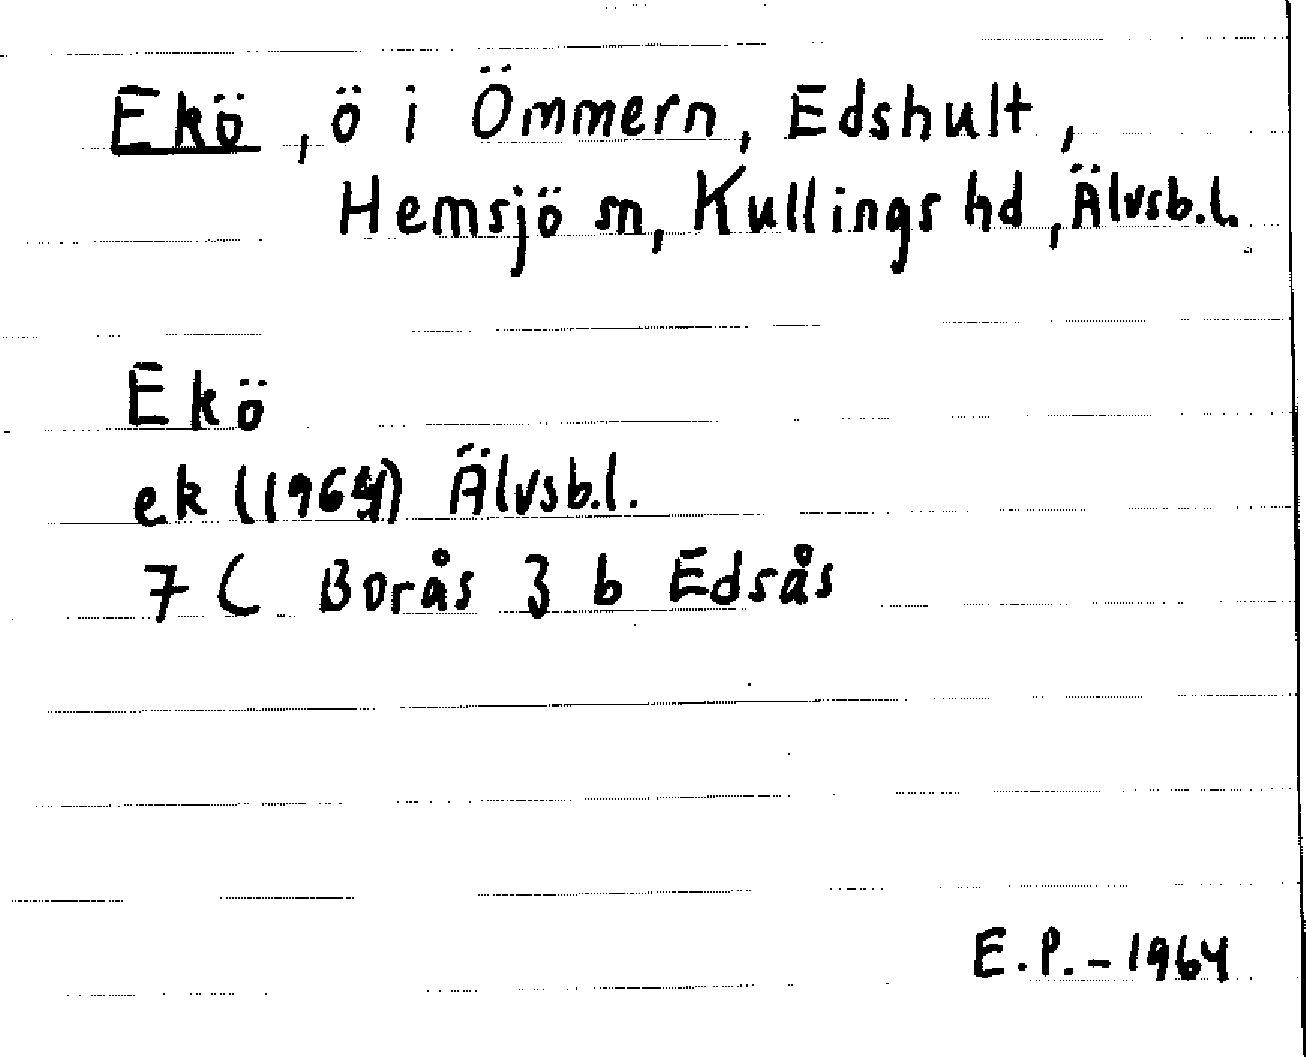 Ekö, ö i Ömmern, Edshult,
Hemsjö sn, Kullings hd, Älvsb.l.
Ekö
ek (1964) Älvsb.l.
7 C Borås 3 b Edsås
E.P. - 1964